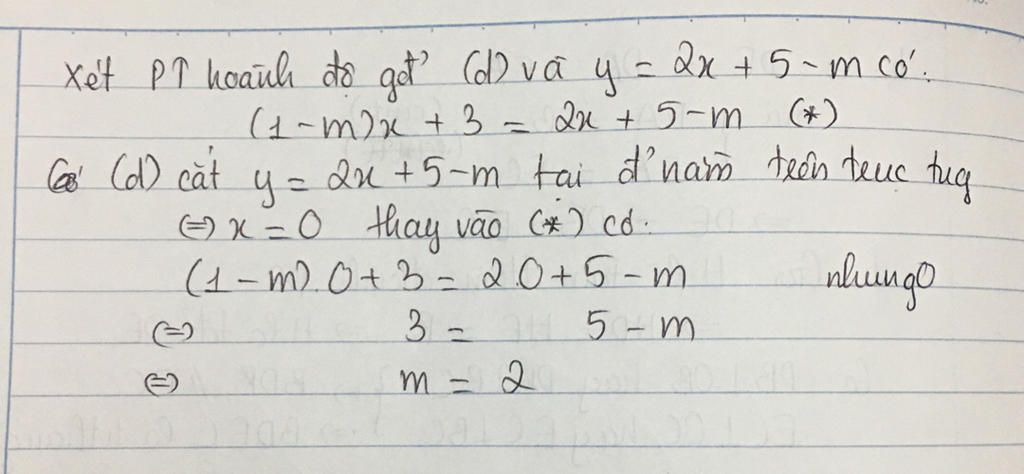 Xét PT hoành độ gđ' (d) và y = 2x + 5 - m có:
(1 - m)x + 3 = 2x + 5 - m (*)
(d) cắt y = 2x + 5 - m tại đ' nằm trên trục tug
⇔ x = 0 thay vào (*) có:
(1 - m).0 + 3 = 2.0 + 5 - m nhung0
⇔ 3 = 5 - m
⇔ m = 2